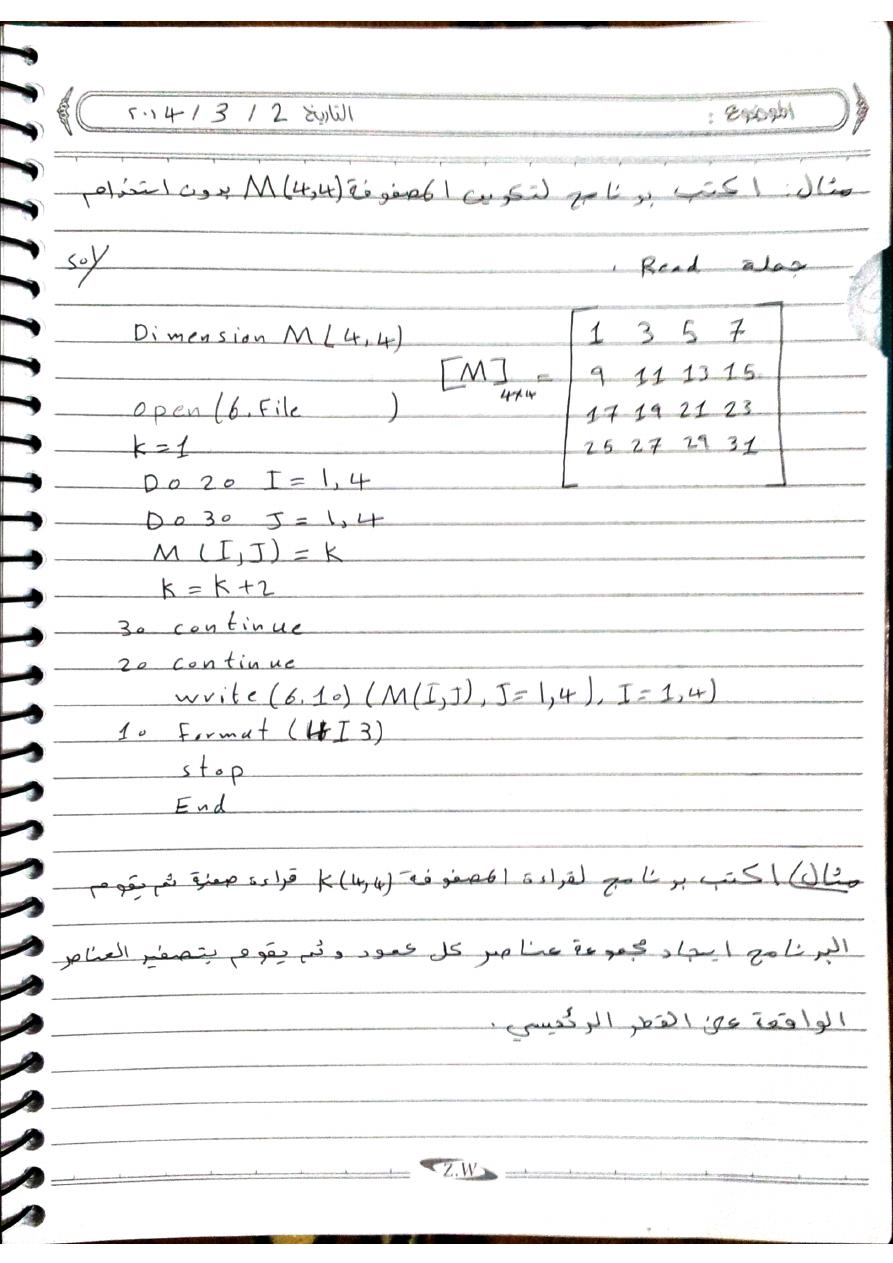 الموضوع : التاريخ 2 / 3 / ٢٠١٤
مثال: اكتب برنامج لتكوين المصفوفة M(4,4) بدون استخدام
جملة Read .
sol/
Dimension M(4,4)
open(6.File )
k=1
Do 20 I=1,4
Do 30 J=1,4
M(I,J)=k
k=k+2
30 continue
20 continue
write(6.10) (M(I,J), J=1,4), I=1,4)
10 Format (4I3)
stop
End
[M]4×4 =
1 3 5 7
9 11 13 15
17 19 21 23
25 27 29 31
مثال) اكتب برنامج لقراءة المصفوفة K(4,4) قراءة صفية ثم يقوم
البرنامج ايجاد مجموعة عناصر كل عمود و ثم يقوم بتصفير العناصر
الواقعة على القطر الرئيسي .
Z.W